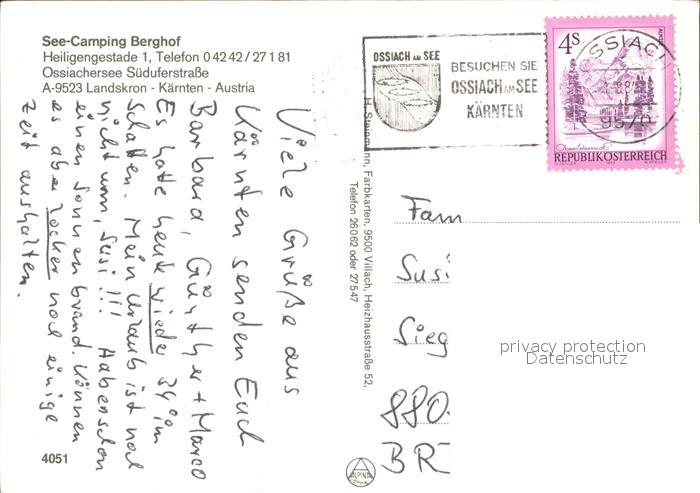 See-Camping Berghof
Heiligengestade 1, Telefon 0 42 42 / 27 1 81
Ossiachersee Süduferstraße
A-9523 Landskron - Kärnten - Austria
Viele Grüße aus
Kärnten senden Euch
Barbara, Günther + Marco
Es hatte heute wieder 34° im
Schatten. Mein Urlaub ist noch
nicht um, Susi !!! Haben schon
einen Sonnenbrand. Können
es aber locker noch einige
Zeit aushalten.
4051
H. Steinmann, Farbkarten, 9500 Villach, Heizhausstraße 52,
Telefon 26062 oder 27547
ALPINA
OSSIACH AM SEE
BESUCHEN SIE
OSSIACH AM SEE
KÄRNTEN
4S
OSSIACH
9570
REPUBLIK ÖSTERREICH
Fam
Susi
Sieg
880
BR
privacy protection
Datenschutz